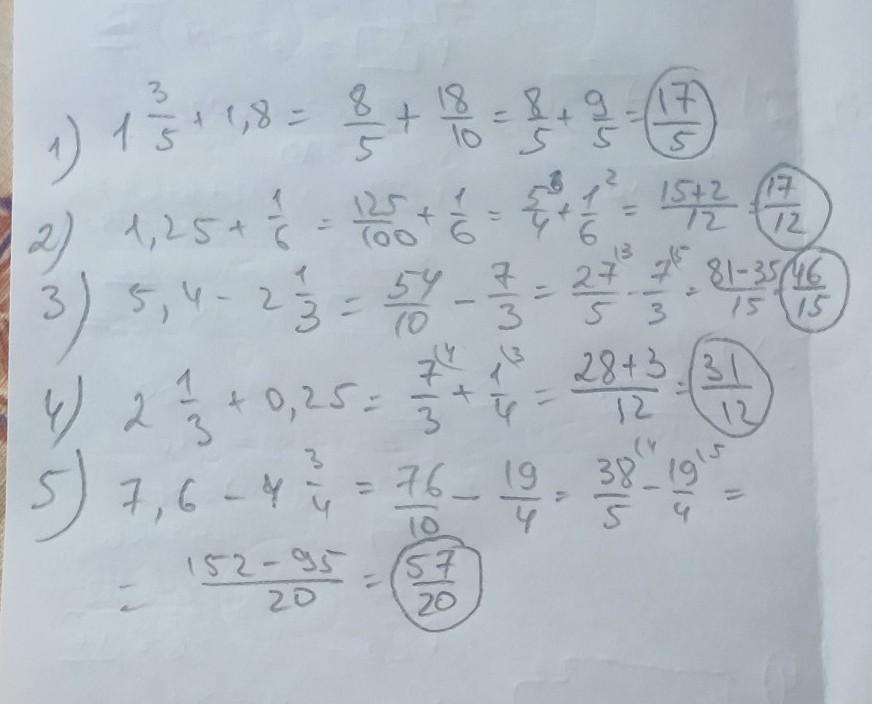 1) 1 3/5 + 1,8 = 8/5 + 18/10 = 8/5 + 9/5 = 17/5
2) 1,25 + 1/6 = 125/100 + 1/6 = 5/4 (3 + 1/6 (2 = 15+2/12 = 17/12
3) 5,4 - 2 1/3 = 54/10 - 7/3 = 27/5 (3 - 7/3 (5 = 81-35/15 = 46/15
4) 2 1/3 + 0,25 = 7/3 (4 + 1/4 (3 = 28+3/12 = 31/12
5) 7,6 - 4 3/4 = 76/10 - 19/4 = 38/5 (4 - 19/4 (5 =
= 152-95/20 = 57/20